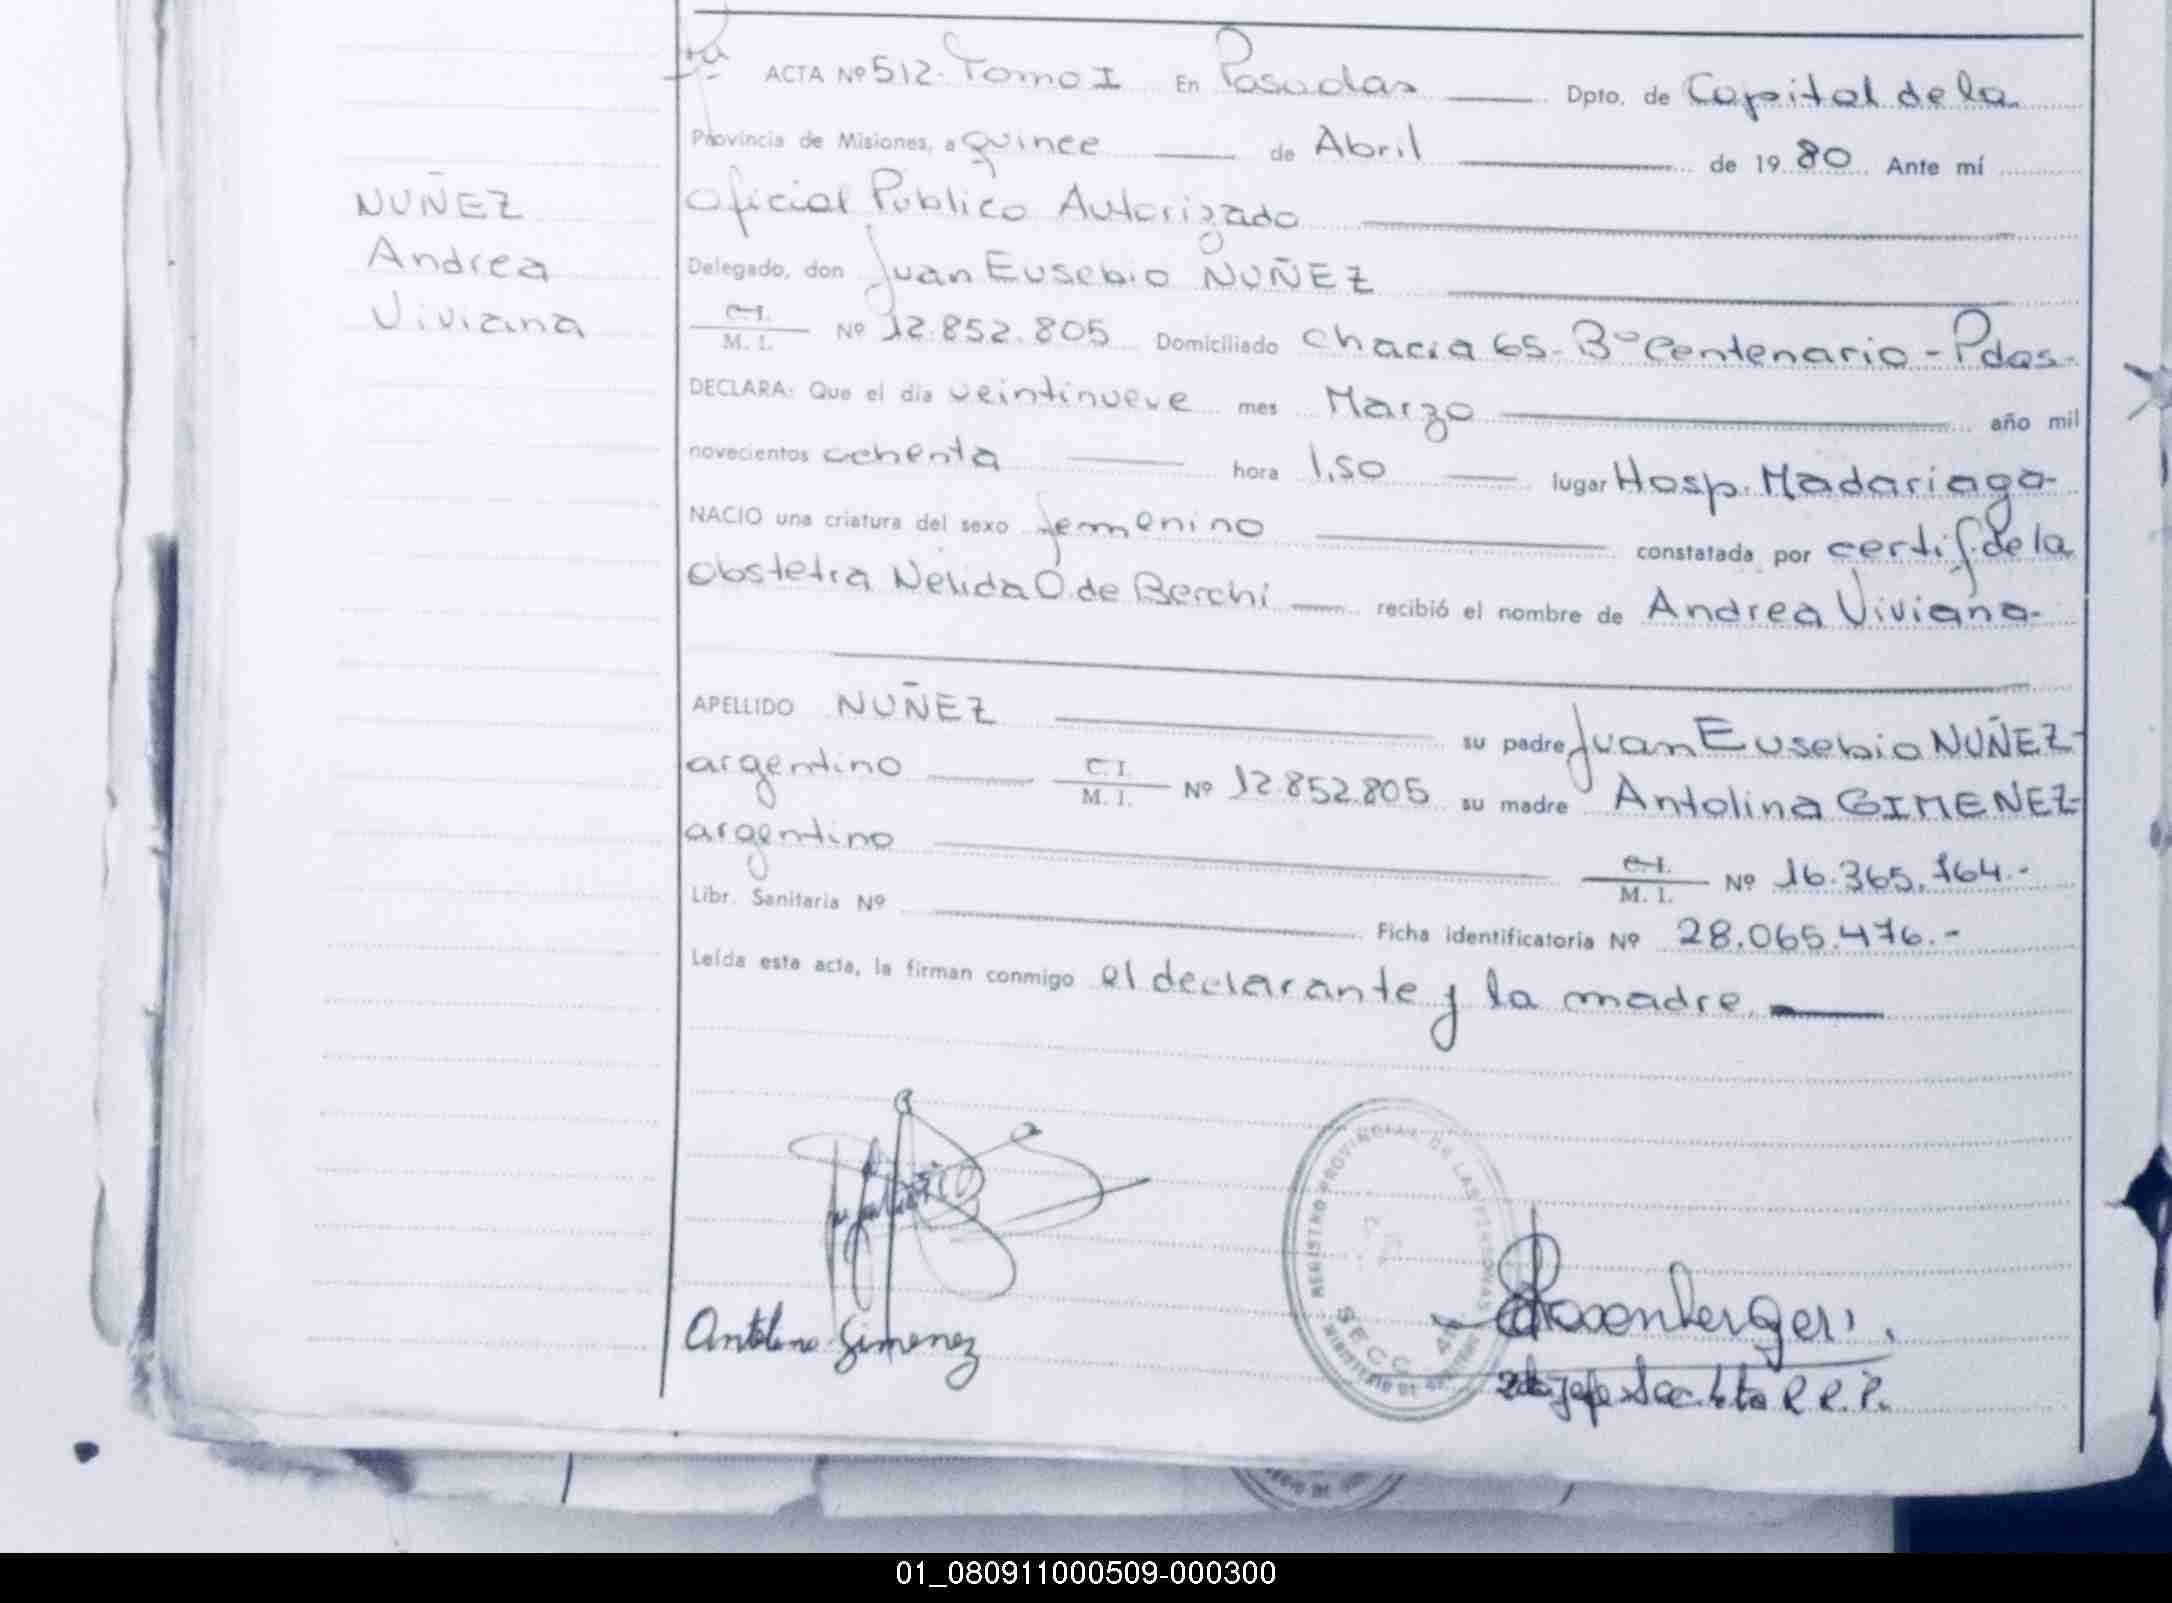 ACTA Nº 512. Tomo I En Posadas Dpto. de Capital de la
Provincia de Misiones, a quince de Abril de 19 80 Ante mí
NUÑEZ
Andrea
Viviana
Oficial Público Autorizado
Delegado, don Juan Eusebio NUÑEZ
C.I.
M. I. Nº 12.852.805 Domiciliado Chacra 65- Bº Centenario - Pdas.
DECLARA: Que el día veintinueve mes Marzo año mil
novecientos ochenta hora 1,50 lugar Hosp. Madariaga-
NACIO una criatura del sexo femenino constatada por certif. de la
obstetra Nelida O. de Berchi recibió el nombre de Andrea Viviana-
APELLIDO NUÑEZ su padre Juan Eusebio NUÑEZ-
argentino C. I.
M. I. Nº 12.852.805 su madre Antolina GIMENEZ-
argentino C.I.
M. I. Nº 16.365.164.-
Libr. Sanitaria Nº Ficha identificatoria Nº 28.065.476.-
Leída esta acta, la firman conmigo el declarante y la madre.
REGISTRO PROVINCIAL DE LAS PERSONAS
SECC.
MINISTERIO DE
Antolina Gimenez
01_080911000509-000300